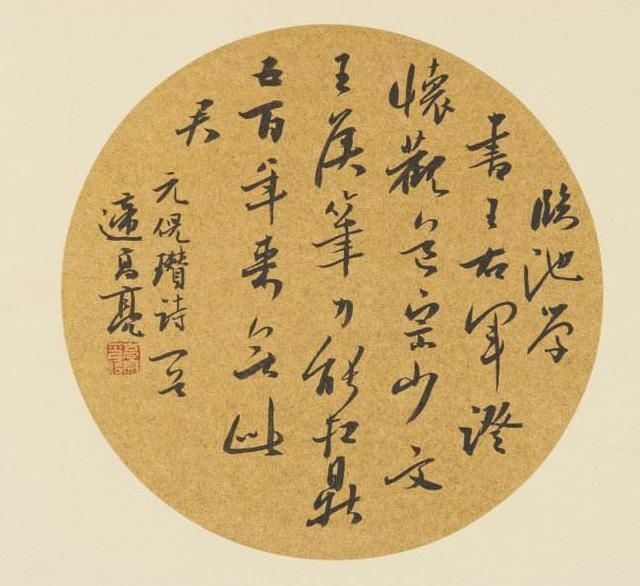 臨池学
書王右軍澄
懷觀道宗少文
王侯筆力能扛鼎
五百年來無此
君
元倪瓚詩一首
遆高亮